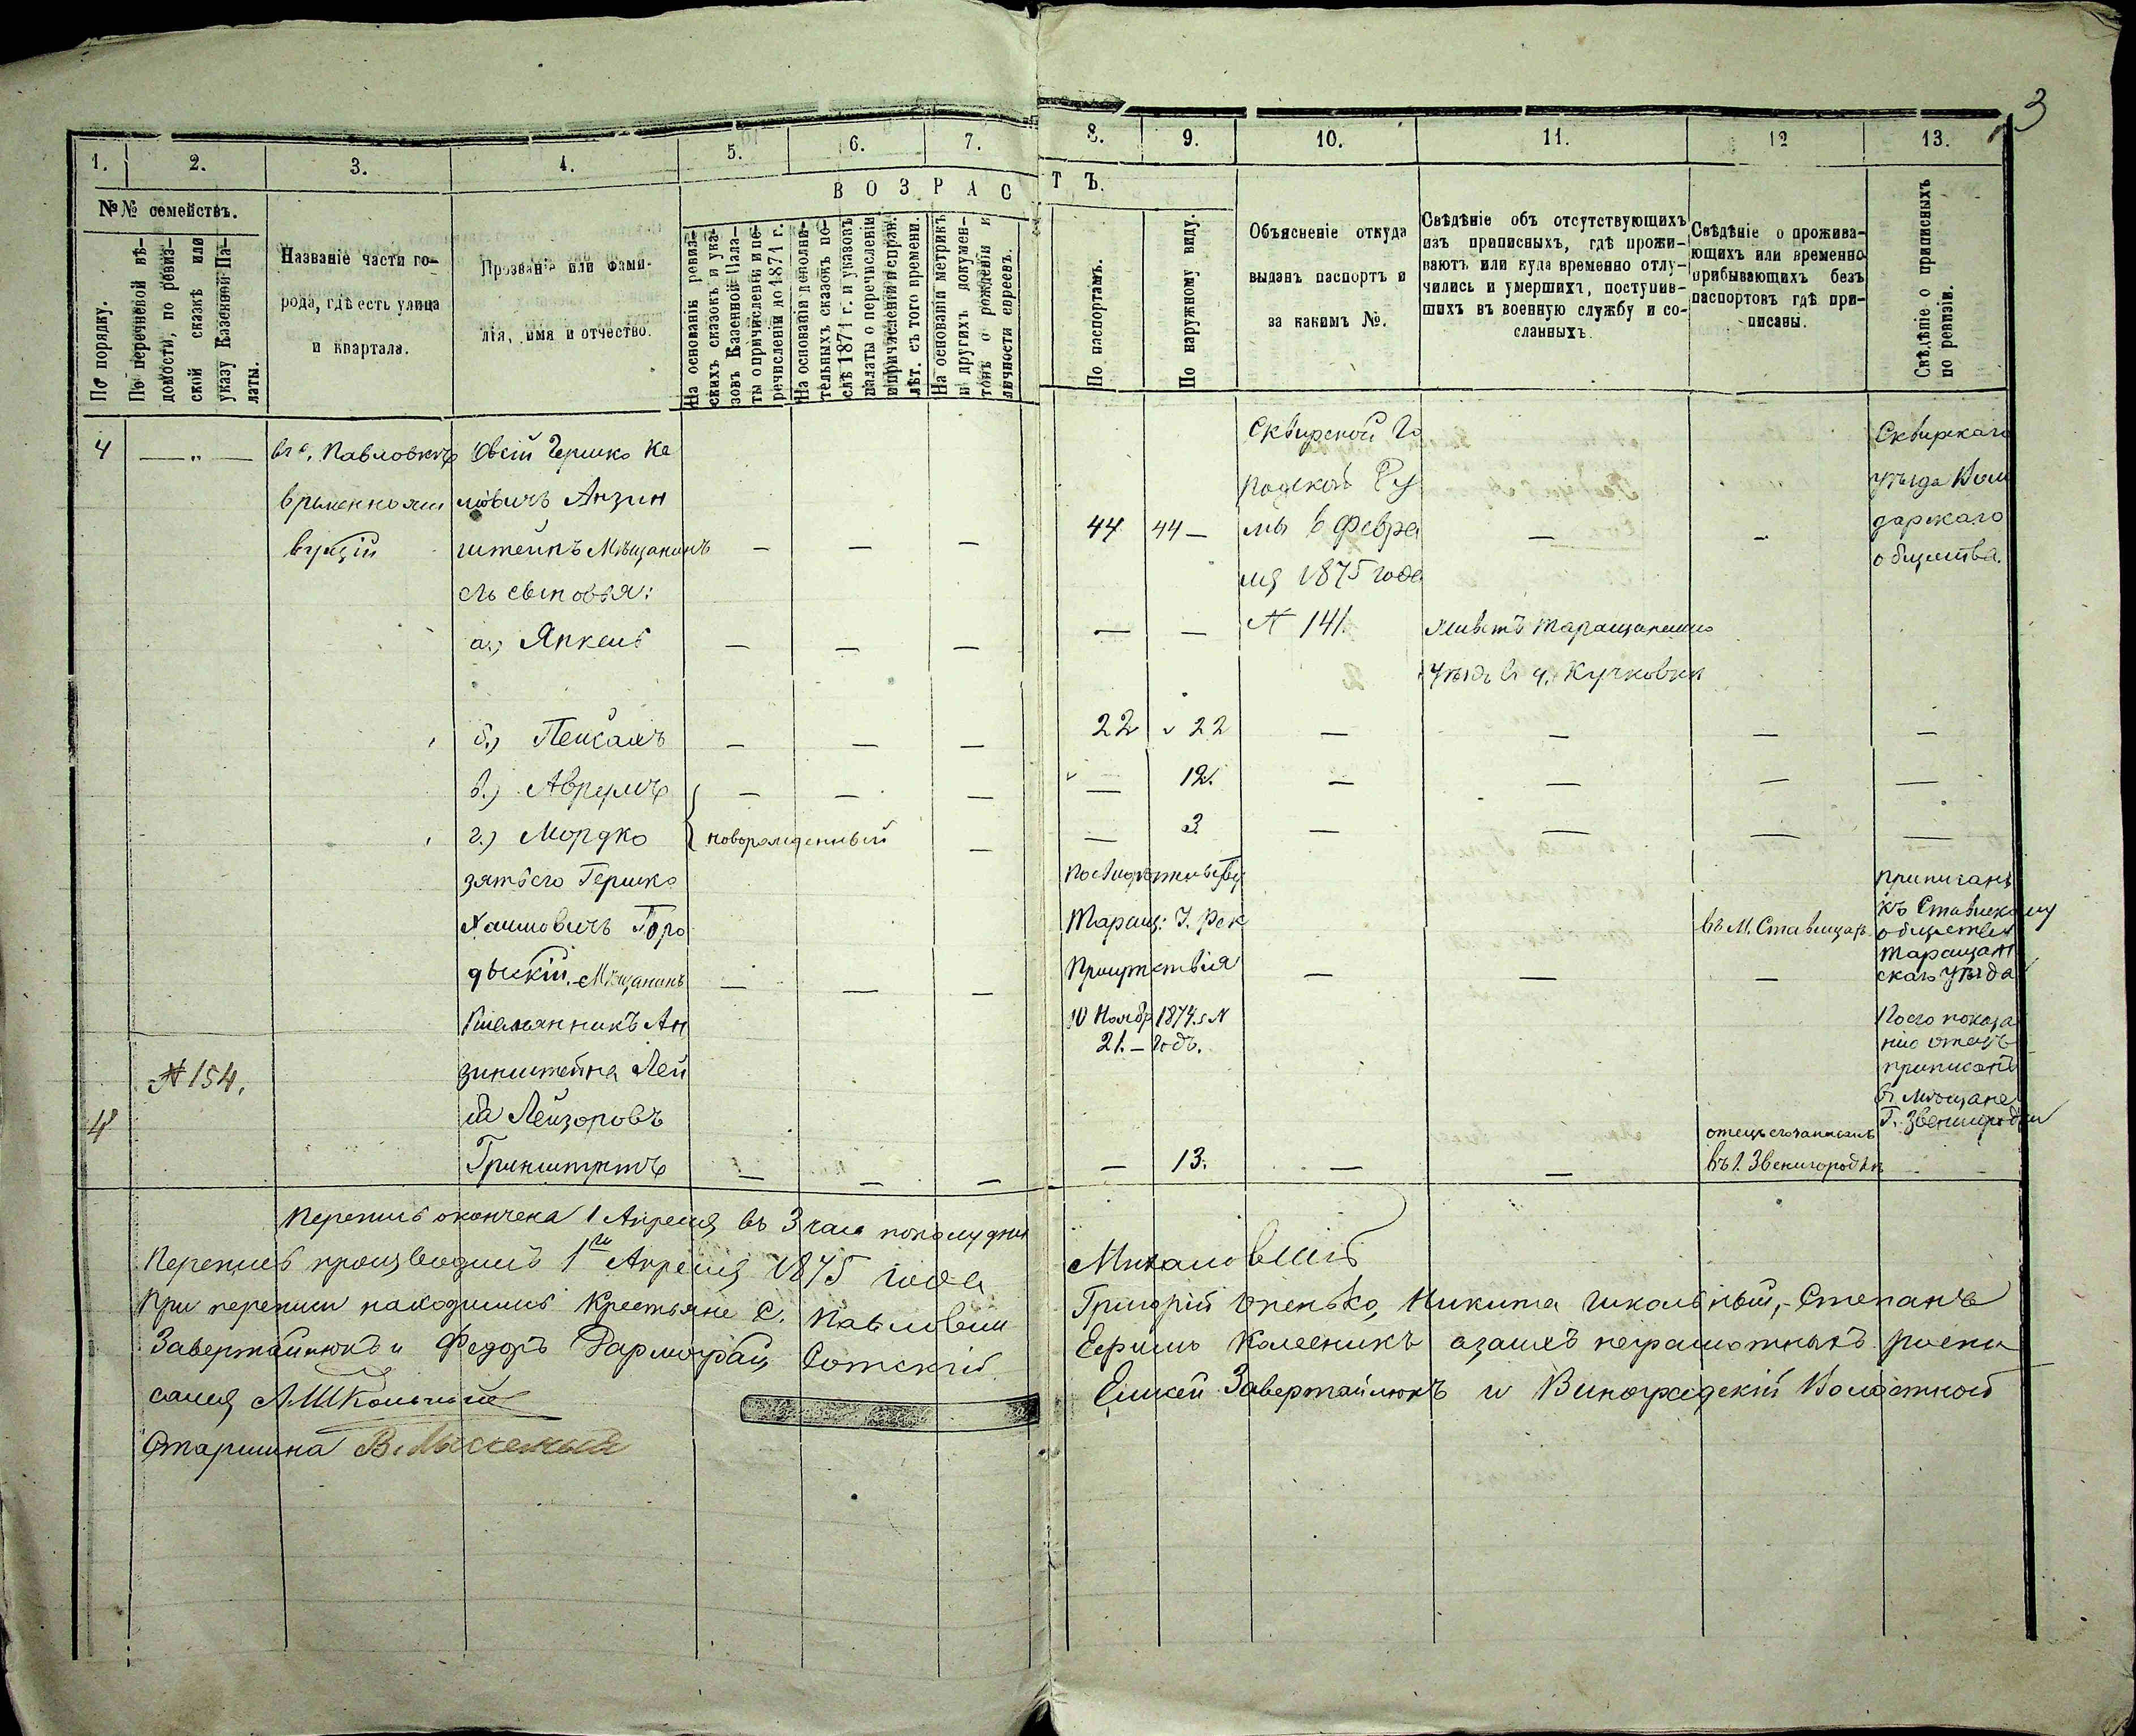 3
1. 2. 3. 4. 5. 6. 7. 8. 9. 10. 11. 12 13.
№№ семействъ.
По порядку.
По перечневой вѣ-
домости, по ревиз-
ской сказкѣ или
указу Казенной Па-
латы.
Названіе части го-
рода, гдѣ есть улица
и квартала.
Прозваніе или фами-
лія, имя и отчество.
ВОЗРАСТЪ.
На основаніи ревиз-
скихъ сказокъ и ука-
зовъ Казенной Пала-
ты о причисленіи и пе-
речисленіи до 1871 г.
На основаніи дополни-
тельныхъ сказокъ по-
слѣ 1871 г. и указовъ
палаты о перечисленіи
и причисленіи и справк.
лѣт. съ того времени.
На основаніи метрикъ
и другихъ докумен-
товъ о рожденіи и
личности евреевъ.
По паспортамъ.
По наружному виду.
Объясненіе откуда
выданъ паспортъ и
за какимъ №.
Свѣдѣніе объ отсутствующихъ
изъ приписныхъ, гдѣ прожи-
ваютъ или куда временно отлу-
чились и умершихъ, поступив-
шихъ въ военную службу и со-
сланныхъ.
Свѣдѣніе о прожива-
ющихъ или временно
прибывающихъ безъ
паспортовъ гдѣ при-
писаны.
Свѣдѣніе о приписныхъ
по ревизіи.
4 — " — въ с. Павловкѣ
временно жи
вущій
Овсій Гершко
Анзин
штейнъ Мѣщанинъ — — —
44 44 —
Сквирской Го
родской Ду
мы 6 Февра
ля 1875 года
№ 141.
— —
Сквирскаго
уѣзда Воло
дарскаго
общества.
его сыновья:
а.) Янкель — — — — — живетъ Таращанскаго
уѣзд. въ Кучковки
б.) Пейсахъ — — — 22 22 — — — —
в.) Аврумъ — — — — 12. — — — —
г.) Мордко новорожденный — — 3 — — — —
зять его Гершко
Хаимовичъ Горо
дыскій. Мѣщанинъ — — —
Таращ: У. Рек
Присутствія
10 Ноябр 1874. г. №
21. — годъ.
— — —
въ М. Ставищахъ
приписанъ
къ Ставискому
обществу
Таращан
скаго уѣзда
№ 154.
4
племянникъ Ан
зинштейна Лей
ба Лейзоровъ
Гринштейнъ — — — — 13. — —
отецъ его записанъ
въ г. Звенигородкѣ
По его показа
нію отецъ
приписанъ
въ мѣщане
Г. Звенигородки
Перепись окончена 1 Апреля въ 3 часа пополудни
Перепись производилъ 1го Апреля 1875 года
При переписи находились Крестьяне С. Павловки Григорій Опенько, Никита Школьный, Степанъ
Завертайлюкъ и Федоръ Дармограй Сотскій Ефимъ Колесникъ а за ихъ неграмотныхъ роспи
сался А Школьный Елисей Завертайлюкъ и Виноградскій Волостной
Старшина